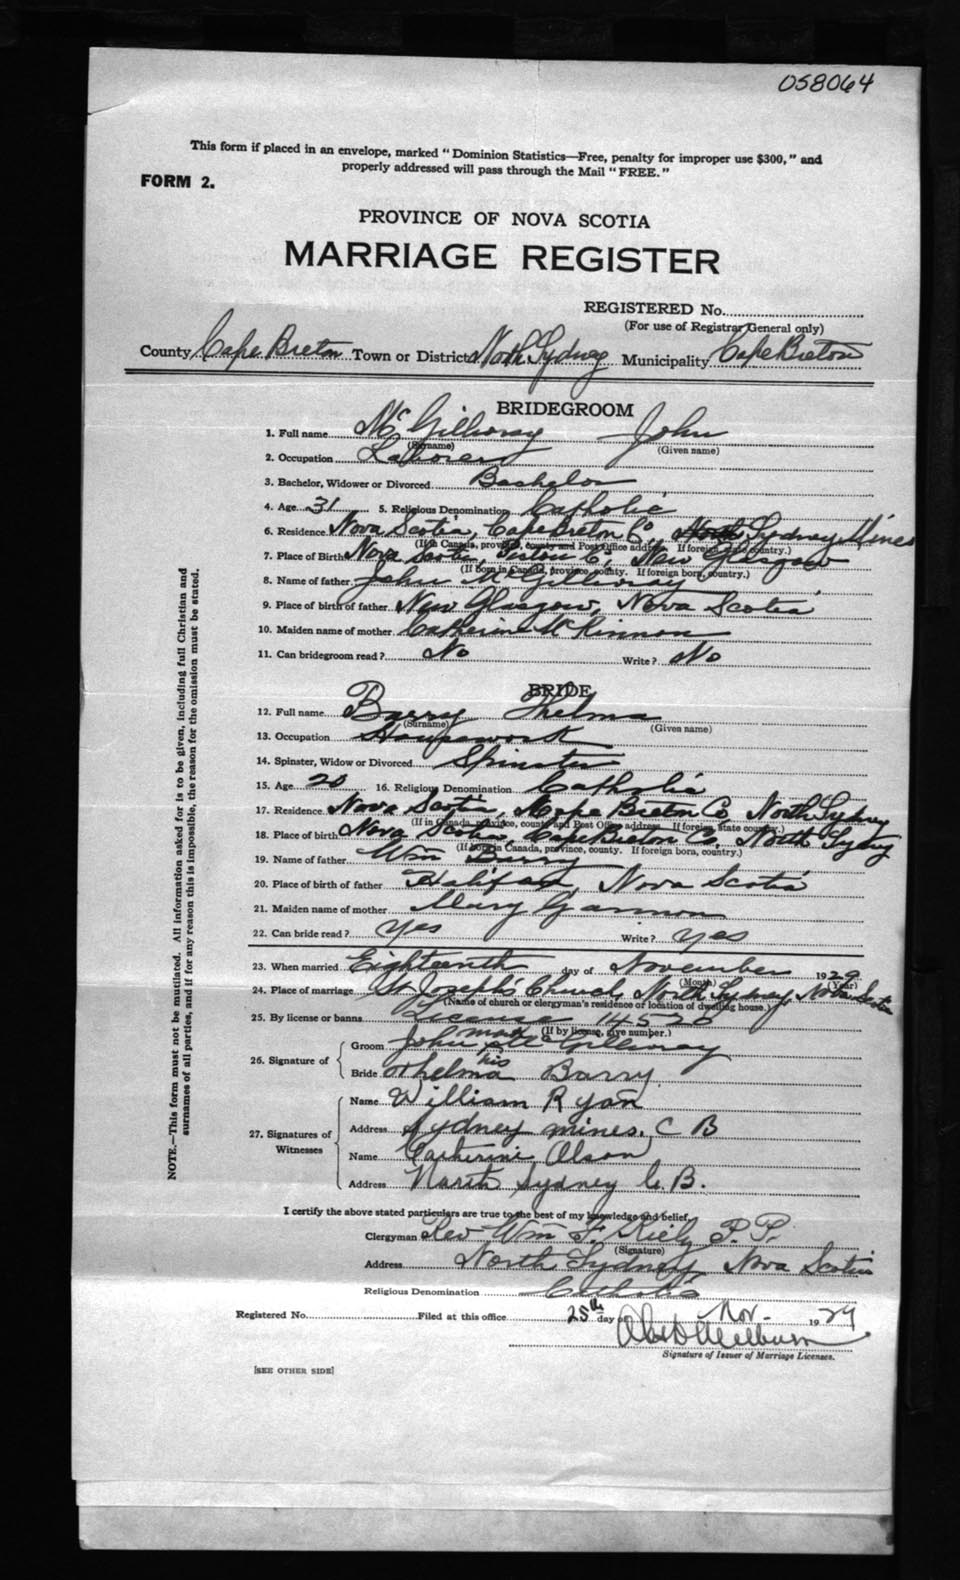 058064
This form if placed in an envelope, marked "Dominion Statistics—Free, penalty for improper use $300," and
properly addressed will pass through the Mail "FREE."
FORM 2.
PROVINCE OF NOVA SCOTIA
MARRIAGE REGISTER
REGISTERED No.
(For use of Registrar General only)
County Cape Breton Town or District North Sydney Municipality Cape Breton
BRIDEGROOM
1. Full name McGillvray John
(Surname) (Given name)
2. Occupation Laborer
3. Bachelor, Widower or Divorced Bachelor
4. Age 31 5. Religious Denomination Catholic
6. Residence Nova Scotia, Cape Breton Co, Sydney Mines
(If in Canada, province, county and Post Office address. If foreign, state country.)
7. Place of Birth Nova Scotia, Pictou Co, New Glasgow
(If born in Canada, province, county. If foreign born, country.)
8. Name of father John McGillvray
9. Place of birth of father New Glasgow, Nova Scotia
10. Maiden name of mother Catherine McKinnon
11. Can bridegroom read? No Write? No
BRIDE
12. Full name Barry Thelma
(Surname) (Given name)
13. Occupation Housework
14. Spinster, Widow or Divorced Spinster
15. Age 20 16. Religious Denomination Catholic
17. Residence Nova Scotia, Cape Breton Co, North Sydney
(If in Canada, province, county and Post Office address. If foreign, state country.)
18. Place of birth Nova Scotia, Cape Breton Co. North Sydney
(If born in Canada, province, county. If foreign born, country.)
19. Name of father Wm Barry
20. Place of birth of father Halifax, Nova Scotia
21. Maiden name of mother Mary Gannon
22. Can bride read? Yes Write? Yes
23. When married Eighteenth day of November 1929
(Month) (Year)
24. Place of marriage St Joseph's Church, North Sydney, Nova Scotia
(Name of church or clergyman's residence or location of dwelling house.)
25. By license or banns License 14520
(If by license, give number.)
26. Signature of
Groom John McGillvray
his mark
Bride Thelma Barry
27. Signatures of Witnesses
Name William Ryan
Address Sydney mines, C B
Name Catherine Olson
Address North Sydney C.B.
I certify the above stated particulars are true to the best of my knowledge and belief,
Clergyman Rev Wm F. Kiely P.P.
(Signature)
Address North Sydney Nova Scotia
Religious Denomination Catholic
Registered No. Filed at this office 25th day of Nov. 1929
Signature of Issuer of Marriage Licenses.
[SEE OTHER SIDE]
NOTE.—This form must not be mutilated. All information asked for is to be given, including full Christian and
surnames of all parties, and if for any reason this is impossible, the reason for the omission must be stated.